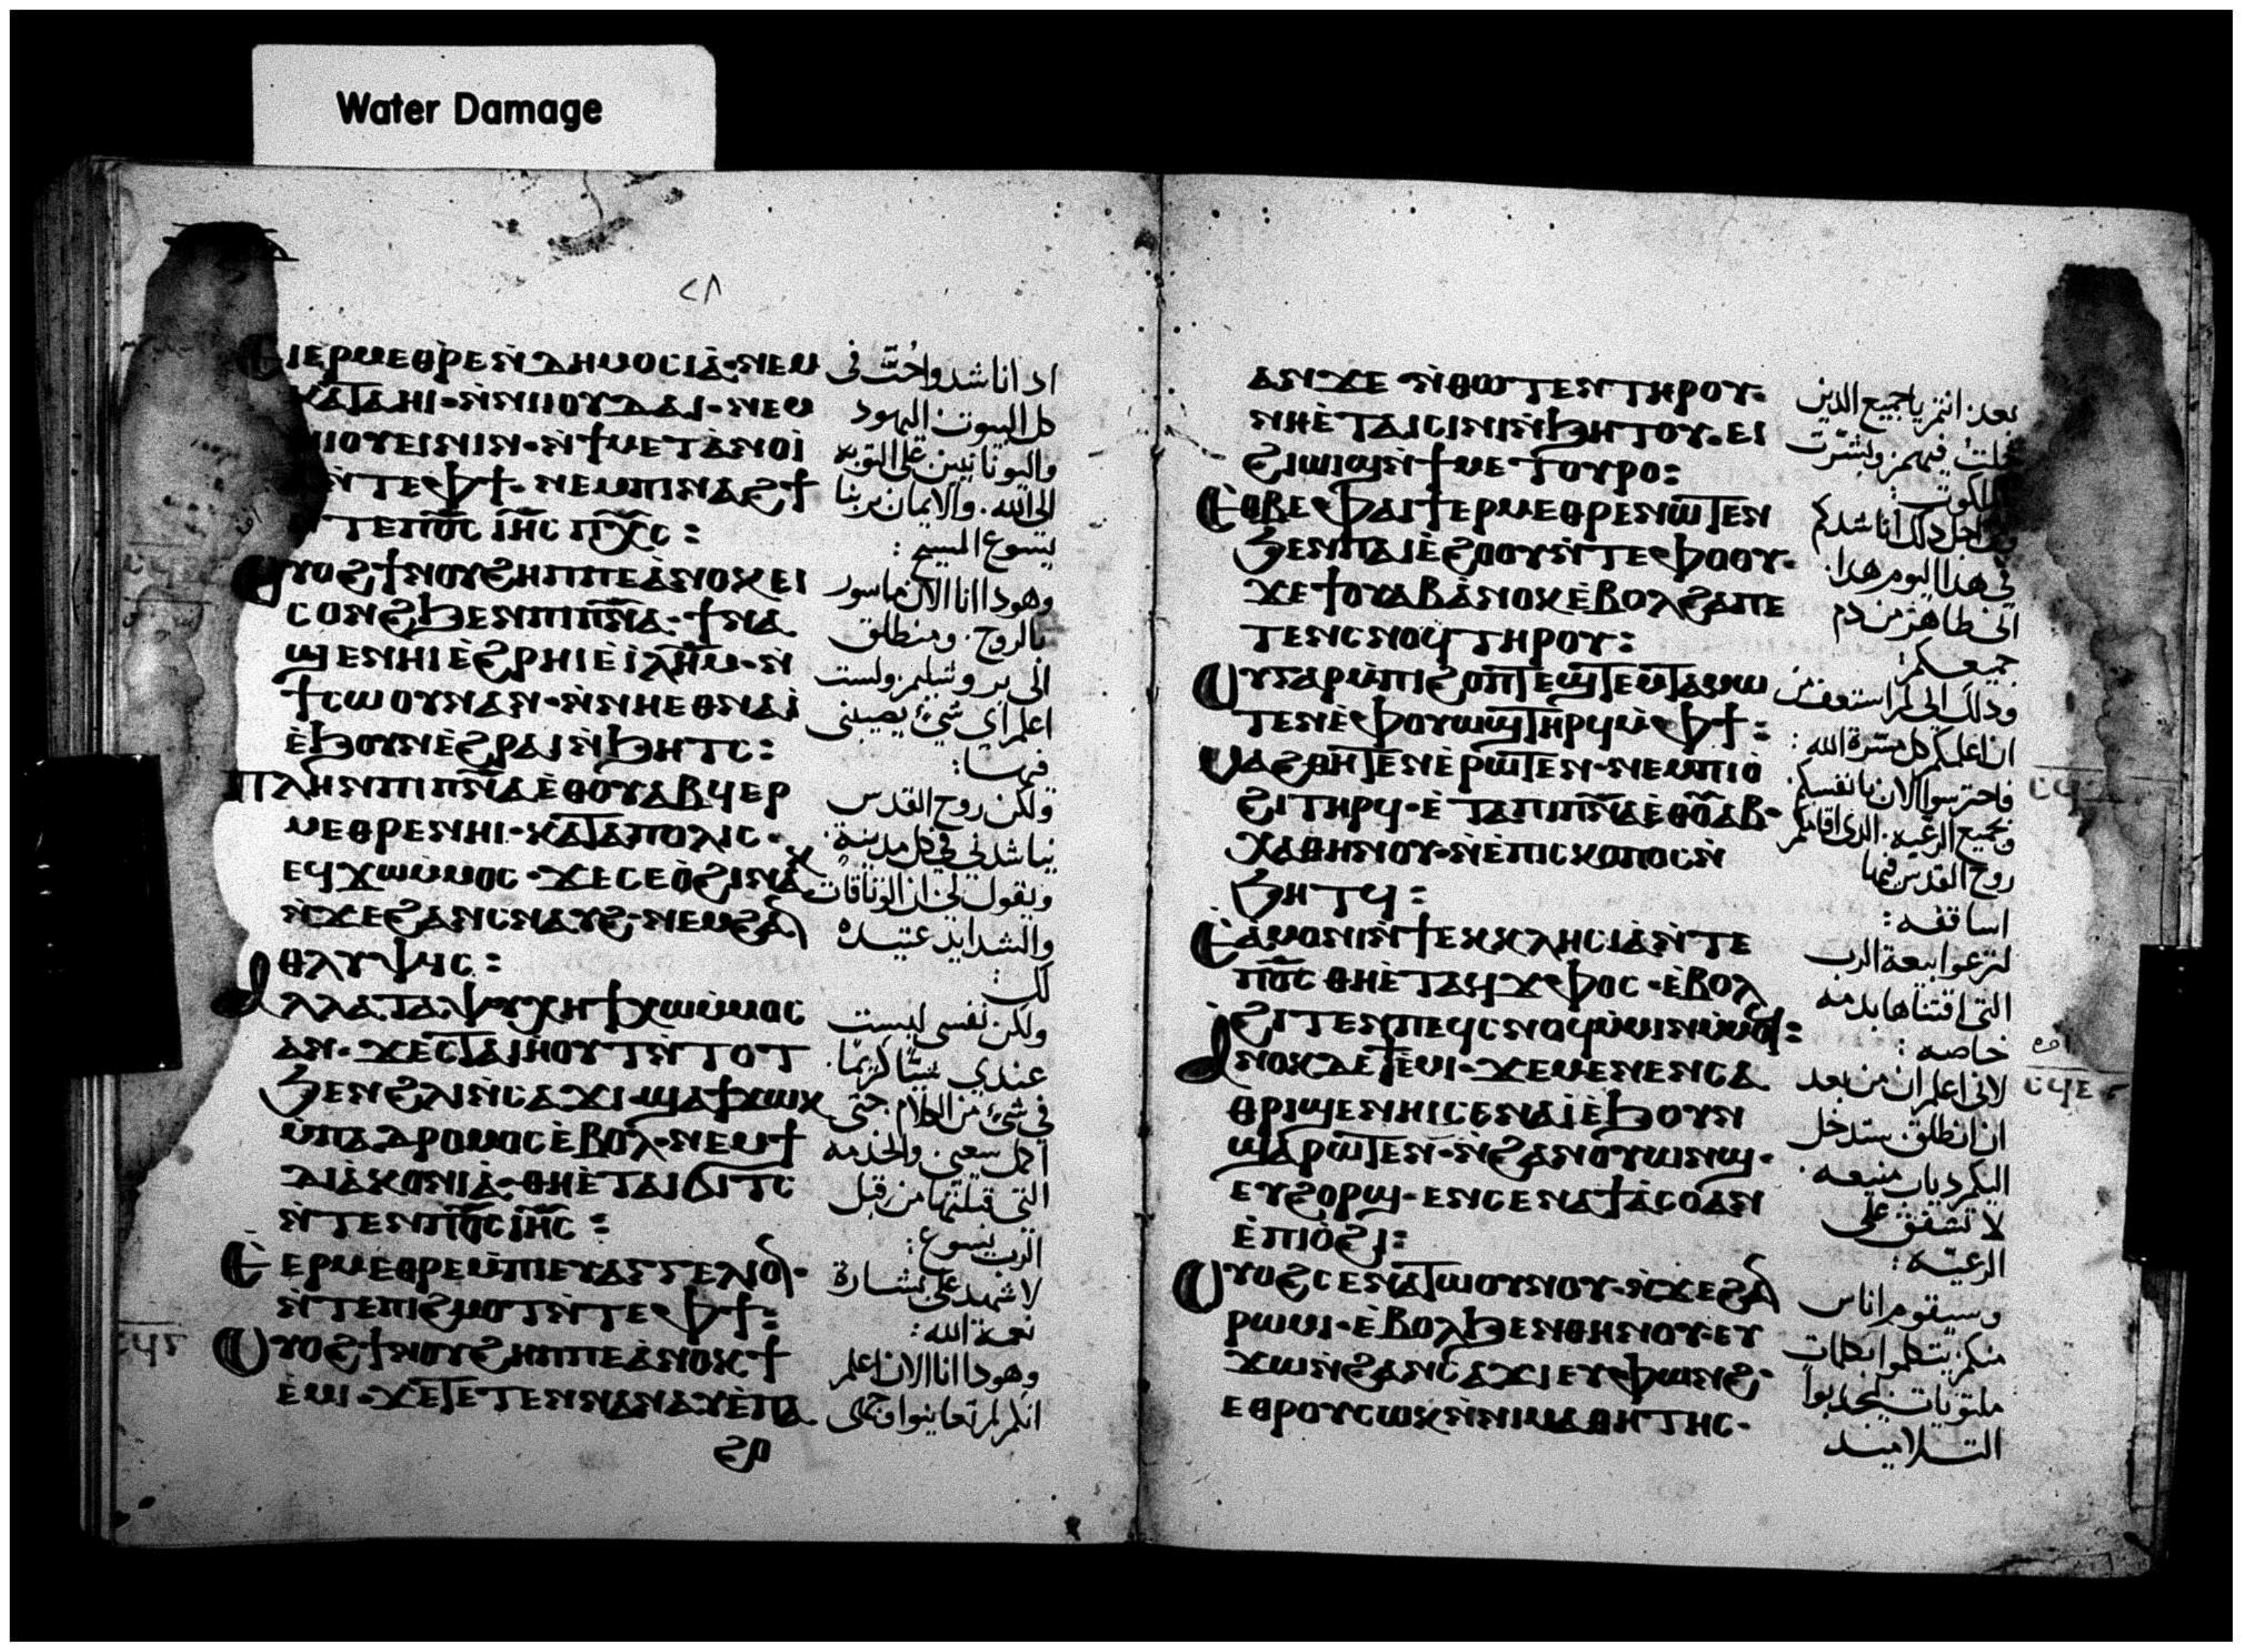 Water Damage
ⲉⲓⲉⲣⲙⲉⲑⲣⲉ ⲛ̀ⲇⲏⲙⲟⲥⲓⲁ̀· ⲛⲉⲙ
ⲕⲁⲧⲁⲏⲓ· ⲛ̀ⲛⲓⲟⲩⲇⲁⲓ· ⲛⲉⲙ
ⲛⲓⲟⲩⲉⲓⲛⲓⲛ· ⲛ̀ϯⲙⲉⲧⲁ̀ⲛⲟⲓ̀
ⲛ̀ⲧⲉⲫϯ· ⲛⲉⲙⲡⲓⲛⲁϩϯ
ⲛ̀ⲧⲉⲡⲟ̅ⲥ̅ ⲓⲏ̅ⲥ̅ ⲡⲭ̅ⲥ̅:
ⲟⲩⲟϩ ϯⲛⲟⲩ ϩⲏⲡⲡⲉ ⲁ̀ⲛⲟⲕ ⲉⲓ
ⲥⲟⲛϩ ϧⲉⲛⲡⲓⲡⲛ̅ⲁ̅· ϯⲛⲁ
ϣⲉⲛⲏⲓ ⲉ̀ϩⲣⲏⲓ ⲉ̀ⲓ̀ⲗⲏ̅ⲙ̅· ⲛ̀
ϯⲥⲱⲟⲩⲛ ⲁⲛ· ⲛ̀ⲛⲏⲉⲑⲛⲁⲓ̀
ⲉ̀ϧⲟⲩⲛ ⲉ̀ϩⲣⲁⲓ ⲛ̀ϧⲏⲧⲥ:
ⲡⲗⲏⲛ ⲡⲓⲡⲛ̅ⲁ̅ ⲉ̀ⲑⲟⲩⲁⲃ ϥⲉⲣ
ⲙⲉⲑⲣⲉ ⲛⲏⲓ· ⲕⲁⲧⲁⲡⲟⲗⲓⲥ·
ⲉϥϫⲱⲙ̀ⲙⲟⲥ· ϫⲉⲥⲉⲟ̀ϩⲓ ⲛⲁⲕ
ⲛ̀ϫⲉϩⲁⲛⲥⲛⲁⲩϩ· ⲛⲉⲙϩⲁⲛ
ⲑⲗⲩⲯⲓⲥ:
ⲁⲗⲗⲁ ⲧⲁⲯⲩⲭⲏ ϯϫⲱⲙ̀ⲙⲟⲥ
ⲁⲛ· ϫⲉⲥⲧⲁⲓⲏⲟⲩⲧ ⲛ̀ⲧⲟⲧ
ϧⲉⲛϩⲗⲓ ⲛ̀ⲥⲁϫⲓ· ϣⲁϯϫⲱⲕ
ⲙ̀ⲡⲁⲇⲣⲟⲙⲟⲥ ⲉ̀ⲃⲟⲗ· ⲛⲉⲙϯ
ⲇⲓⲁ̀ⲕⲟⲛⲓⲁ̀· ⲑⲏⲉ̀ⲧⲁⲓϭⲓⲧⲥ
ⲛ̀ⲧⲉⲛⲡⲟ̅ⲥ̅ ⲓⲏ̅ⲥ̅:
ⲉ̀ⲉⲣⲙⲉⲑⲣⲉ ⲙ̀ⲡⲓⲉⲩⲁⲅⲅⲉⲗⲓⲟⲛ·
ⲛ̀ⲧⲉⲡⲓϩⲙⲟⲧ ⲛ̀ⲧⲉⲫϯ:
ⲟⲩⲟϩ ϯⲛⲟⲩ ϩⲏⲡⲡⲉ ⲁ̀ⲛⲟⲕ ϯ
ⲉ̀ⲙⲓ· ϫⲉⲧⲉⲧⲉⲛⲛⲁⲛⲁⲩ ⲉ̀ⲡⲁ
ϩⲟ
اذ اناشد واحثّ فى
كل البيوت اليهود
واليونانيين على التوبه
الى الله. والايمان بربنا
يسوع المسيح:
وهوذا انا الان ماسور
بالروح. ومنطلق
الى يروشليم ولست
اعلم اى شىء يصيبنى
فيها:
ولكن روح القدس
يناشدنى فى كل مدينة:
ويقول لى ان الوثاقات
والشدايد عتيده
لك:
ولكن نفسى ليست
عندي شيئا كريما.
فى شىء من الكلام حتى
اكمل سعيى والخدمه
التى قبلتها من قبل
الرب يسوع:
لاشهد على بشارة
نعمة الله:
وهوذا انا الان اعلم
انكم لم تعاينوا وجهى
ⲁⲛϫⲉ ⲛ̀ⲑⲱⲧⲉⲛ ⲧⲏⲣⲟⲩ·
ⲛⲏⲉ̀ⲧⲁⲓⲥⲓⲛⲓ ⲛ̀ϧⲏⲧⲟⲩ· ⲉⲓ
ϩⲓⲱⲓϣ ⲛ̀ϯⲙⲉⲧⲟⲩⲣⲟ:
ⲉⲑⲃⲉⲫⲁⲓ ϯⲉⲣⲙⲉⲑⲣⲉ ⲛⲱⲧⲉⲛ
ϧⲉⲛⲡⲁⲓⲉ̀ϩⲟⲟⲩ ⲛ̀ⲧⲉⲫⲟⲟⲩ·
ϫⲉϯⲟⲩⲁⲃ ⲁ̀ⲛⲟⲕ ⲉ̀ⲃⲟⲗϩⲁⲡⲉ
ⲧⲉⲛⲥⲛⲟϥ ⲧⲏⲣⲟⲩ:
ⲟⲩⲅⲁⲣ ⲙ̀ⲡⲓϩⲟⲡⲧ ⲉϣⲧⲉⲙⲧⲁⲙⲱ
ⲧⲉⲛ ⲉ̀ⲫⲟⲩⲱϣ ⲧⲏⲣϥ ⲙ̀ⲫϯ:
ⲙⲁϩⲑⲏⲧⲉⲛ ⲉ̀ⲣⲱⲧⲉⲛ· ⲛⲉⲙⲡⲓⲟ̀
ϩⲓ ⲧⲏⲣϥ· ⲉ̀ⲧⲁⲡⲓⲡⲛ̅ⲁ̅ ⲉ̀ⲑⲟ̅ⲁ̅ⲃ·
ⲭⲁⲑⲏⲛⲟⲩ· ⲛ̀ⲉ̀ⲡⲓⲥⲕⲟⲡⲟⲥ ⲛ̀
ϧⲏⲧϥ:
ⲉ̀ⲁ̀ⲙⲟⲛⲓ ⲛ̀ϯⲉⲕⲕⲗⲏⲥⲓⲁ̀ ⲛ̀ⲧⲉ
ⲡⲟ̅ⲥ̅ ⲑⲏⲉ̀ⲧⲁϥϫⲫⲟⲥ· ⲉ̀ⲃⲟⲗ
ϩⲓⲧⲉⲛⲡⲉϥⲥⲛⲟϥ ⲙ̀ⲙⲓⲛⲙ̀ⲙⲟϥ:
ⲁⲛⲟⲕⲇⲉ ϯⲉ̀ⲙⲓ· ϫⲉⲙⲉⲛⲉⲛⲥⲁ
ⲑⲣⲓϣⲉⲛⲏⲓ ⲥⲉⲛⲁⲓ̀ ⲉ̀ϧⲟⲩⲛ
ϣⲁⲣⲱⲧⲉⲛ· ⲛ̀ϩⲁⲛⲟⲩⲱⲛϣ·
ⲉⲩϩⲟⲣϣ· ⲉⲛⲥⲉⲛⲁϯⲁ̀ⲥⲟ ⲁⲛ
ⲉ̀ⲡⲓⲟ̀ϩⲓ:
ⲟⲩⲟϩ ⲥⲉⲛⲁⲧⲱⲟⲩⲛⲟⲩ· ⲛ̀ϫⲉϩⲁⲛ
ⲣⲱⲙⲓ· ⲉ̀ⲃⲟⲗϧⲉⲛⲑⲏⲛⲟⲩ· ⲉⲩ
ϫⲱ ⲛ̀ϩⲁⲛⲥⲁϫⲓ ⲉⲩⲫⲱⲛϩ·
ⲉⲑⲣⲟⲩⲥⲱⲕ ⲛ̀ⲛⲓⲙⲁⲑⲏⲧⲏⲥ·
بعد: انتم يا جميع الدين
جلت فيهم وبشرت
بالملكوت:
ومن اجل ذلك اناشدكم
فى هذا اليوم هذا.
انى طاهر من دم
جميعكم:
وذلك انى لم استعف من
ان اعلمكم كل مسرة الله:
فاحترسوا الان بانفسكم.
وبجميع الرعيه. الذى اقامكم
روح القدس فيها
اساقفه:
لترعوا بيعة الرب
التى اقتناها بدمه
خاصه:
لانى اعلم ان من بعد
ان انطلق ستدخل
اليكم دياب منيعه.
لا تشفق على
الرعيّه:
وسيقوم اناس
منكم يتكلموا بكلمات
ملتويات ليجذبوا
التلاميذ